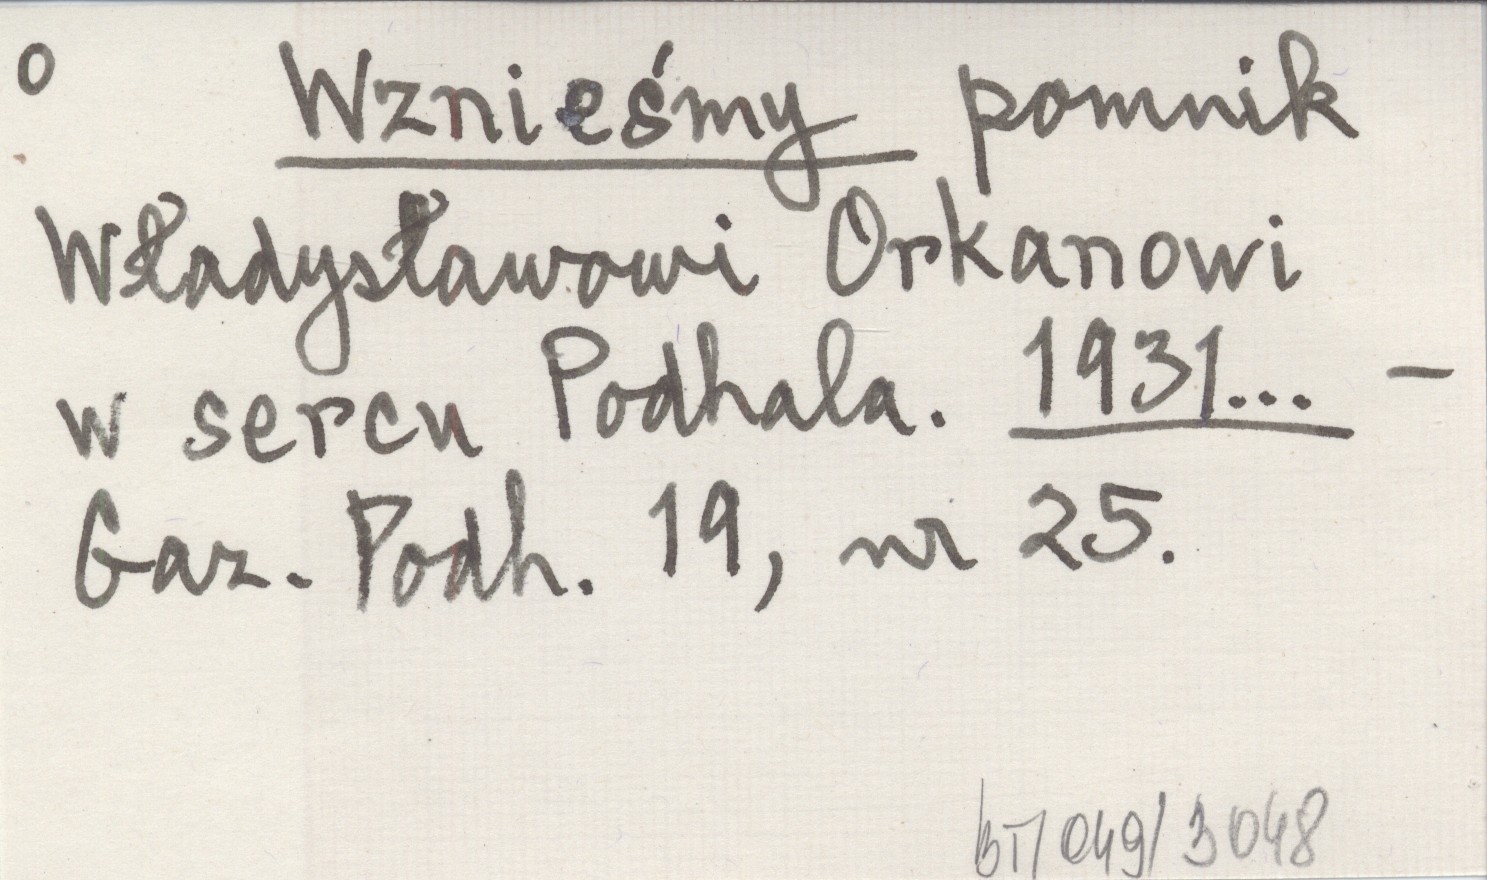 o Wznieśmy pomnik
Władysławowi Orkanowi
w sercu Podhala. 1931... –
Gaz. Podh. 19, nr 25.
BT/049/3048